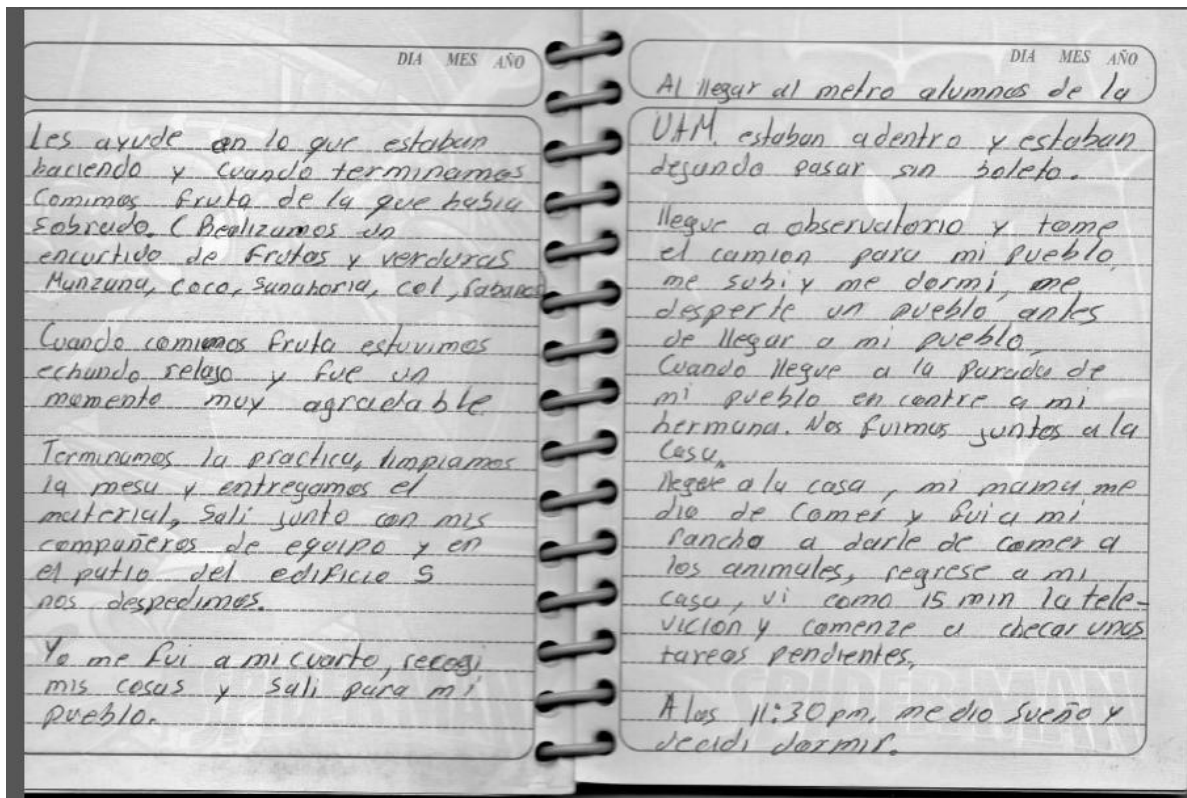 DIA MES AÑO
Les ayude en lo que estaban
haciendo y cuando terminamos
Comimos fruta de la que habia
Sobrado. (Realizamos un
encurtido de frutas y verduras
Manzana, coco, Sanahoria, col, rabanos
Cuando comimos fruta estuvimos
echando relajo y fue un
momento muy agradable
Terminamos la practica, limpiamos
la mesa y entregamos el
material, Sali junto con mis
compañeros de equipo y en
el patio del edificio S
nos despedimos.
Yo me fui a mi cuarto, recogi
mis cosas y Sali para mi
pueblo.
DIA MES AÑO
Al llegar al metro alumnos de la
UAM. estaban adentro y estaban
dejando pasar sin boleto.
llegue a observatorio y tome
el camion para mi pueblo,
me subi y me dormi, me
desperte un pueblo antes
de llegar a mi pueblo,
Cuando llegue a la parada de
mi pueblo en contre a mi
hermana. Nos fuimos juntos a la
Casa,
llegue a la casa, mi mama me
dio de Comer y fui a mi
rancho a darle de comer a
los animales, regrese a mi
casa, vi como 15 min la tele-
vicion y comenze a checar unas
tareas pendientes,
SPIDER-MAN
A las 11:30 pm. me dio Sueño y
decidi dormir.